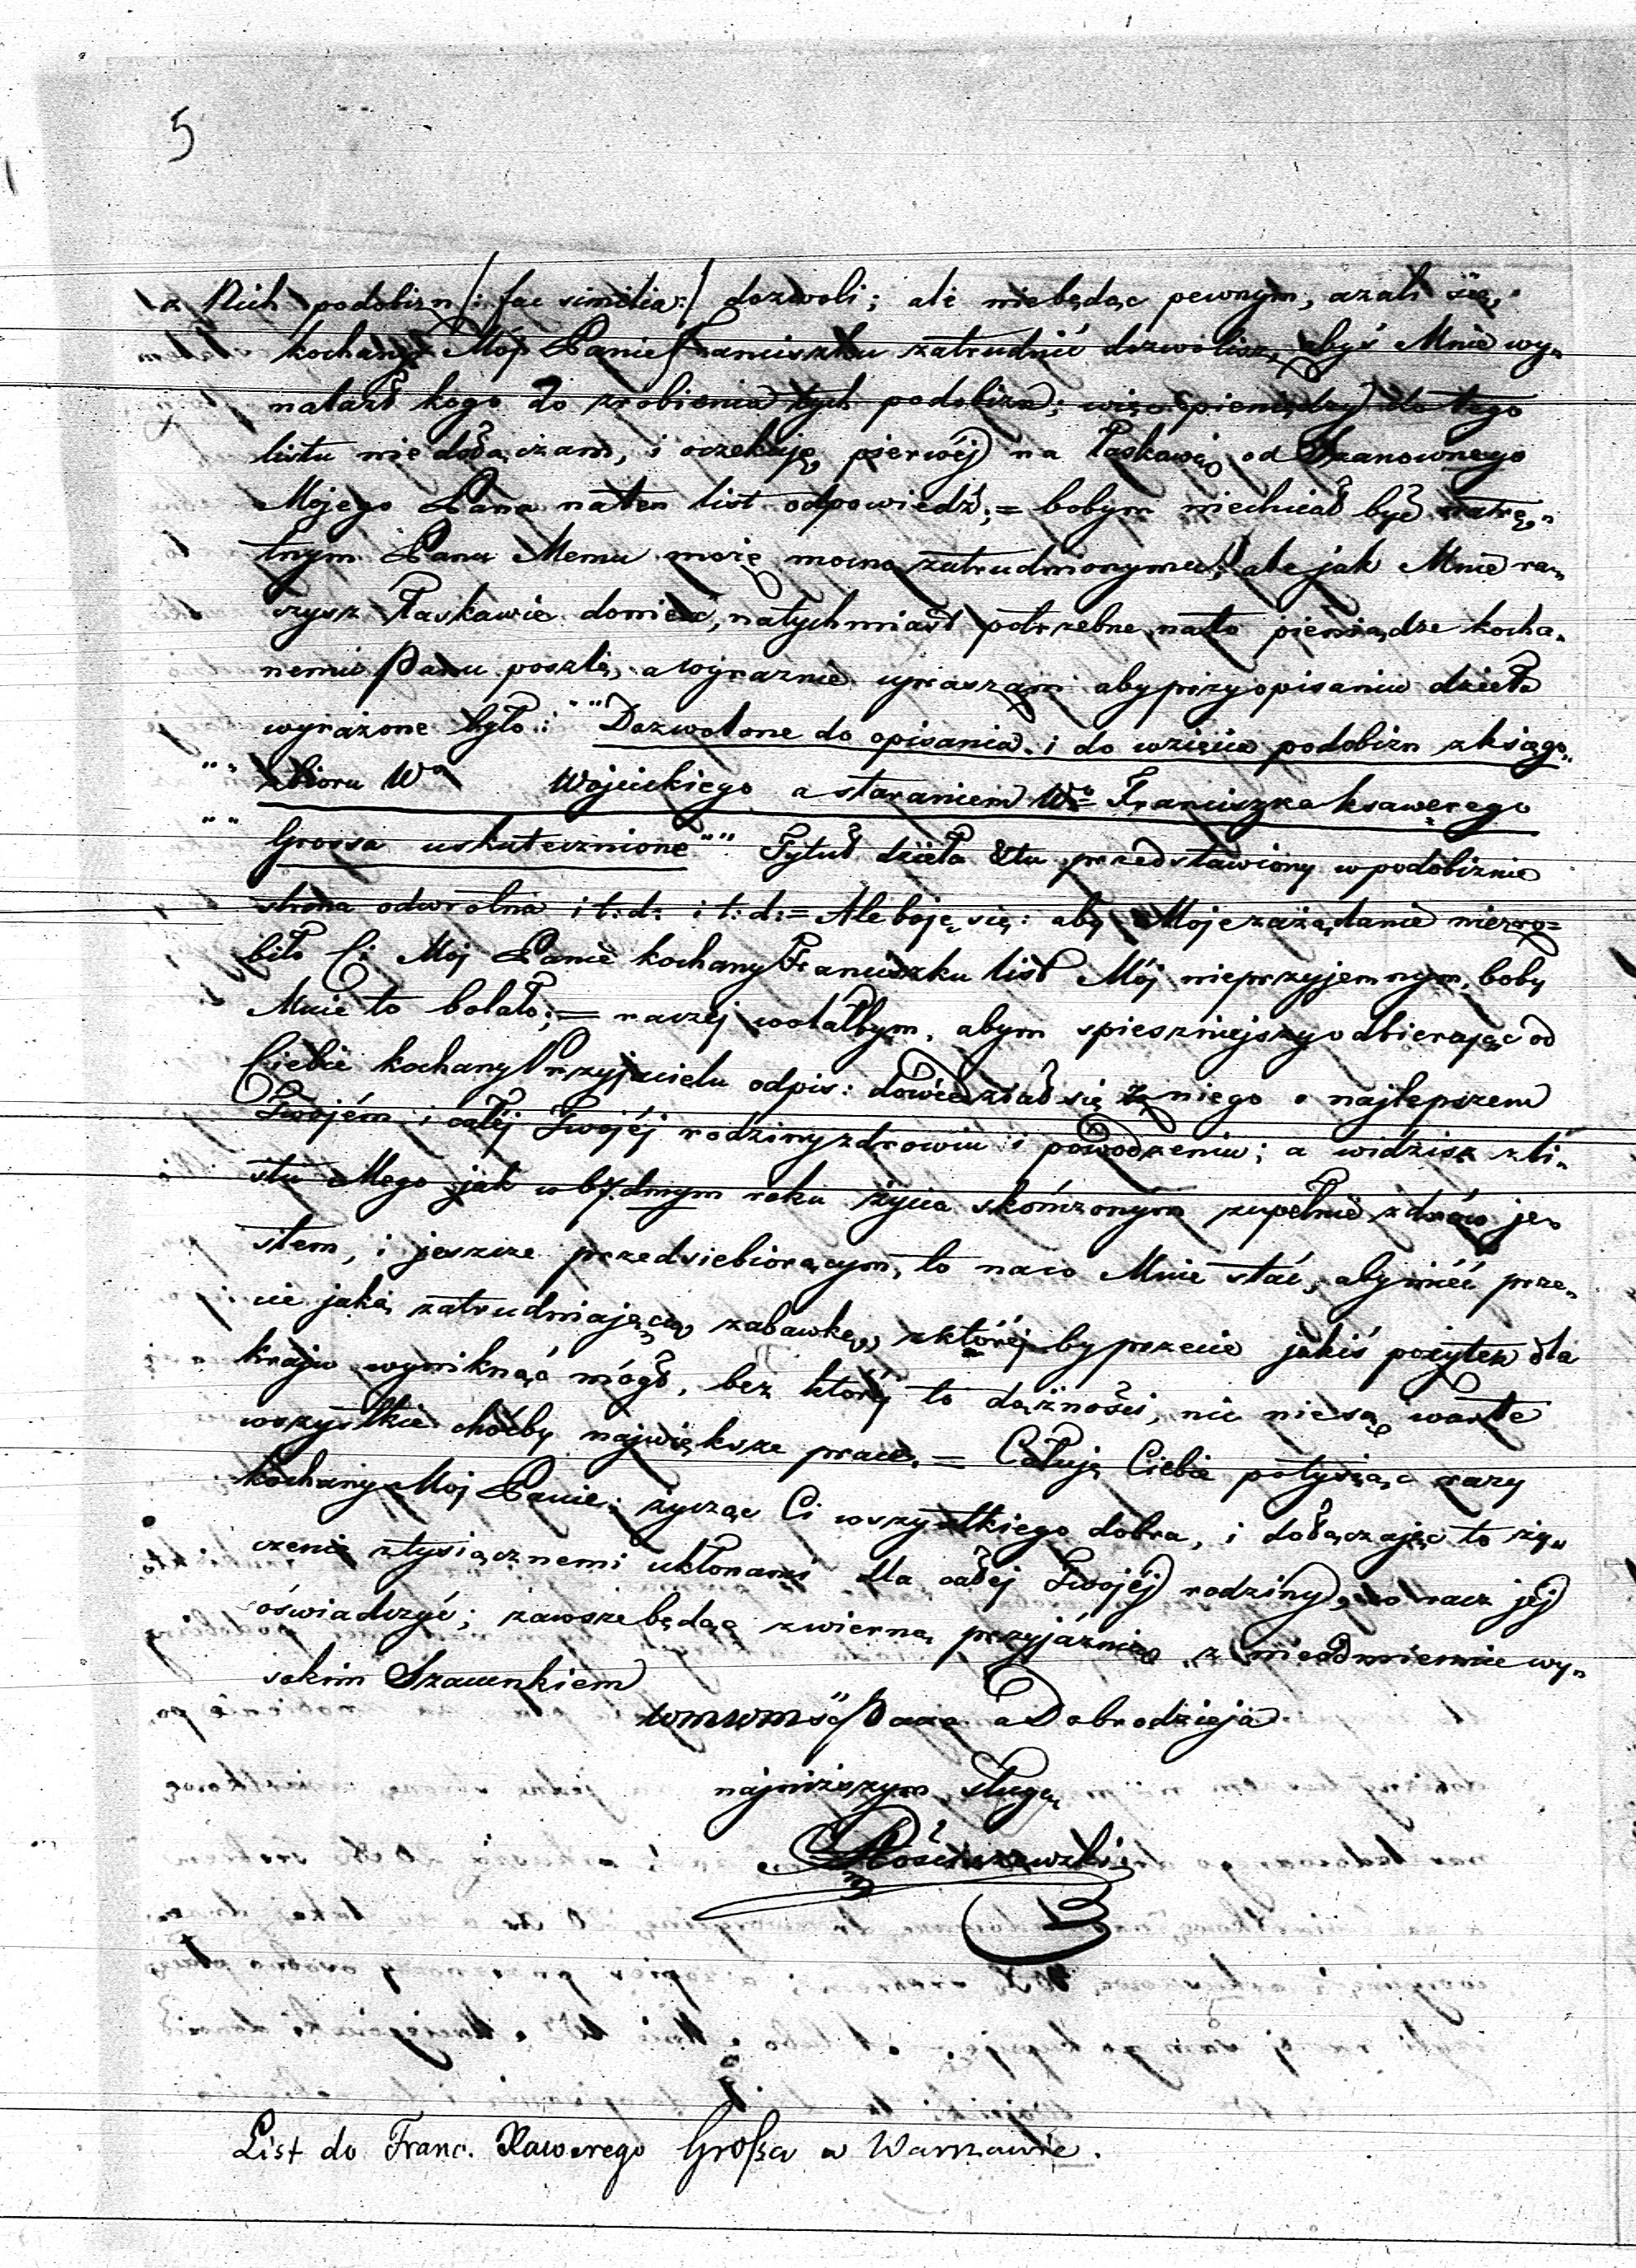 5
z Nich podobizn /: fac similia :/ dozwoli; ale niebędąc pewnym, azali się,
kochany Mój Panie Franciszku zatrudnić dozwolisz, abyś Mnie wy„
nalazł kogo do zrobienia tych podobizn; więc pieniędzy do tego
listu nie dołączam, i oczekuję, pierwéj na łaskawą od Szanownego
Mojego Pana na ten list odpowiedź; = bobym niechciał być natrę„
tnym Panu Memu może mocno zatrudnionymu; ale jak Mnie ra„
czysz łaskawie donieść, natychmiast potrzebne na to pieniądze kocha„
nemu Panu poszlę, a wyraznie upraszam aby przy opisaniu dzieła
wyrażone było: „„Dozwolone do opisania i do wzięcia podobizn z księgo„
„„ zbioru Wo Wójcickiego a staraniem Wo= Franciszka Ksawerego
„„ Grossa uskutecznione““ Tytuł dzieła &tu przedstawiony w podobiznie
strona odwrotna i t: d: i t: d: = Ale boję się: aby Moje zażądanie niezro=
biło Ci Mój Panie kochany Franciszku list Mój nieprzyjemnym, boby
Mnie to bolało; = raczéj wolałbym, abym spieszniejszy odbierając od
Ciebie kochany Przyjacielu odpis: dowiedział się z niego o najlepszem
Twojém i całéj Twojéj rodziny zdrowiu i powodzeniu; a widzisz z li„
stu Mego jak w 67.dmym roku życia skończonym zupełnie zdrów je„
stem, i jeszcze przedsiebiorącym, to na co Mnie stać, aby miéć prze„
cie jaką zatrudniającą zabawkę, z któréj by przecie jakiś pożytek dla
kraju wyniknąć mógł, bez któréj to dążności, nic nie są warte
wszystkie choćby największe prace. = Całuję Ciebie po tysiąc razy
kochany Mój Panie; życząc Ci wszystkiego dobra, i dołączając to ży„
czenie z tysiącznemi ukłonami dla całéj Twojéj rodziny, co racz jéj
oświadczyć; zawsze będąc z wierną przyjaźnią, z nieodmiennie wy„
sokim Szacunkiem
Pana Dobrodzieja
najniższym sługą
List do Franc. Xawerego Großa w Warszawie.